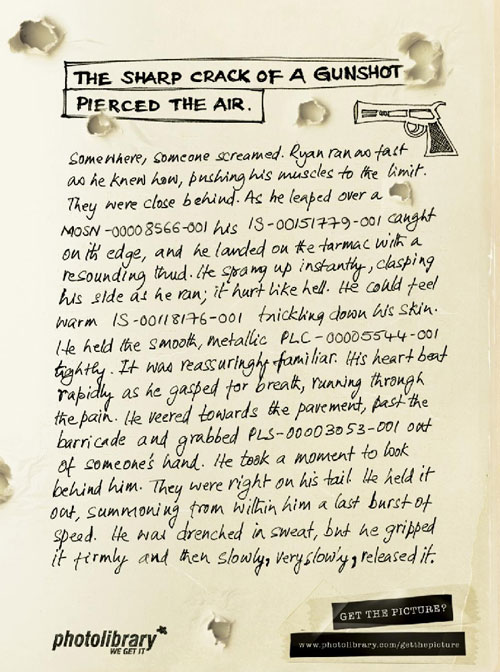 THE SHARP CRACK OF A GUNSHOT
PIERCED THE AIR.
Somewhere, someone screamed. Ryan ran as fast
as he knew how, pushing his muscles to the limit.
They were close behind. As he leaped over a
MOSN-00008566-001 his IS-00151779-001 caught
on it's edge, and he landed on the tarmac with a
resounding thud. He sprang up instantly, clasping
his side as he ran; it hurt like hell. He could feel
warm IS-00118176-001 trickling down his skin.
He held the smooth, metallic PLC-00005544-001
tightly. It was reassuringly familiar. His heart beat
rapidly as he gasped for breath, running through
the pain. He veered towards the pavement, past the
barricade and grabbed PLS-00003053-001 out
of someone's hand. He took a moment to look
behind him. They were right on his tail. He held it
out, summoning from within him a last burst of
speed. He was drenched in sweat, but he gripped
it firmly and then slowly, very slowly, released it.
GET THE PICTURE?
www.photolibrary.com/getthepicture
photolibrary
WE GET IT